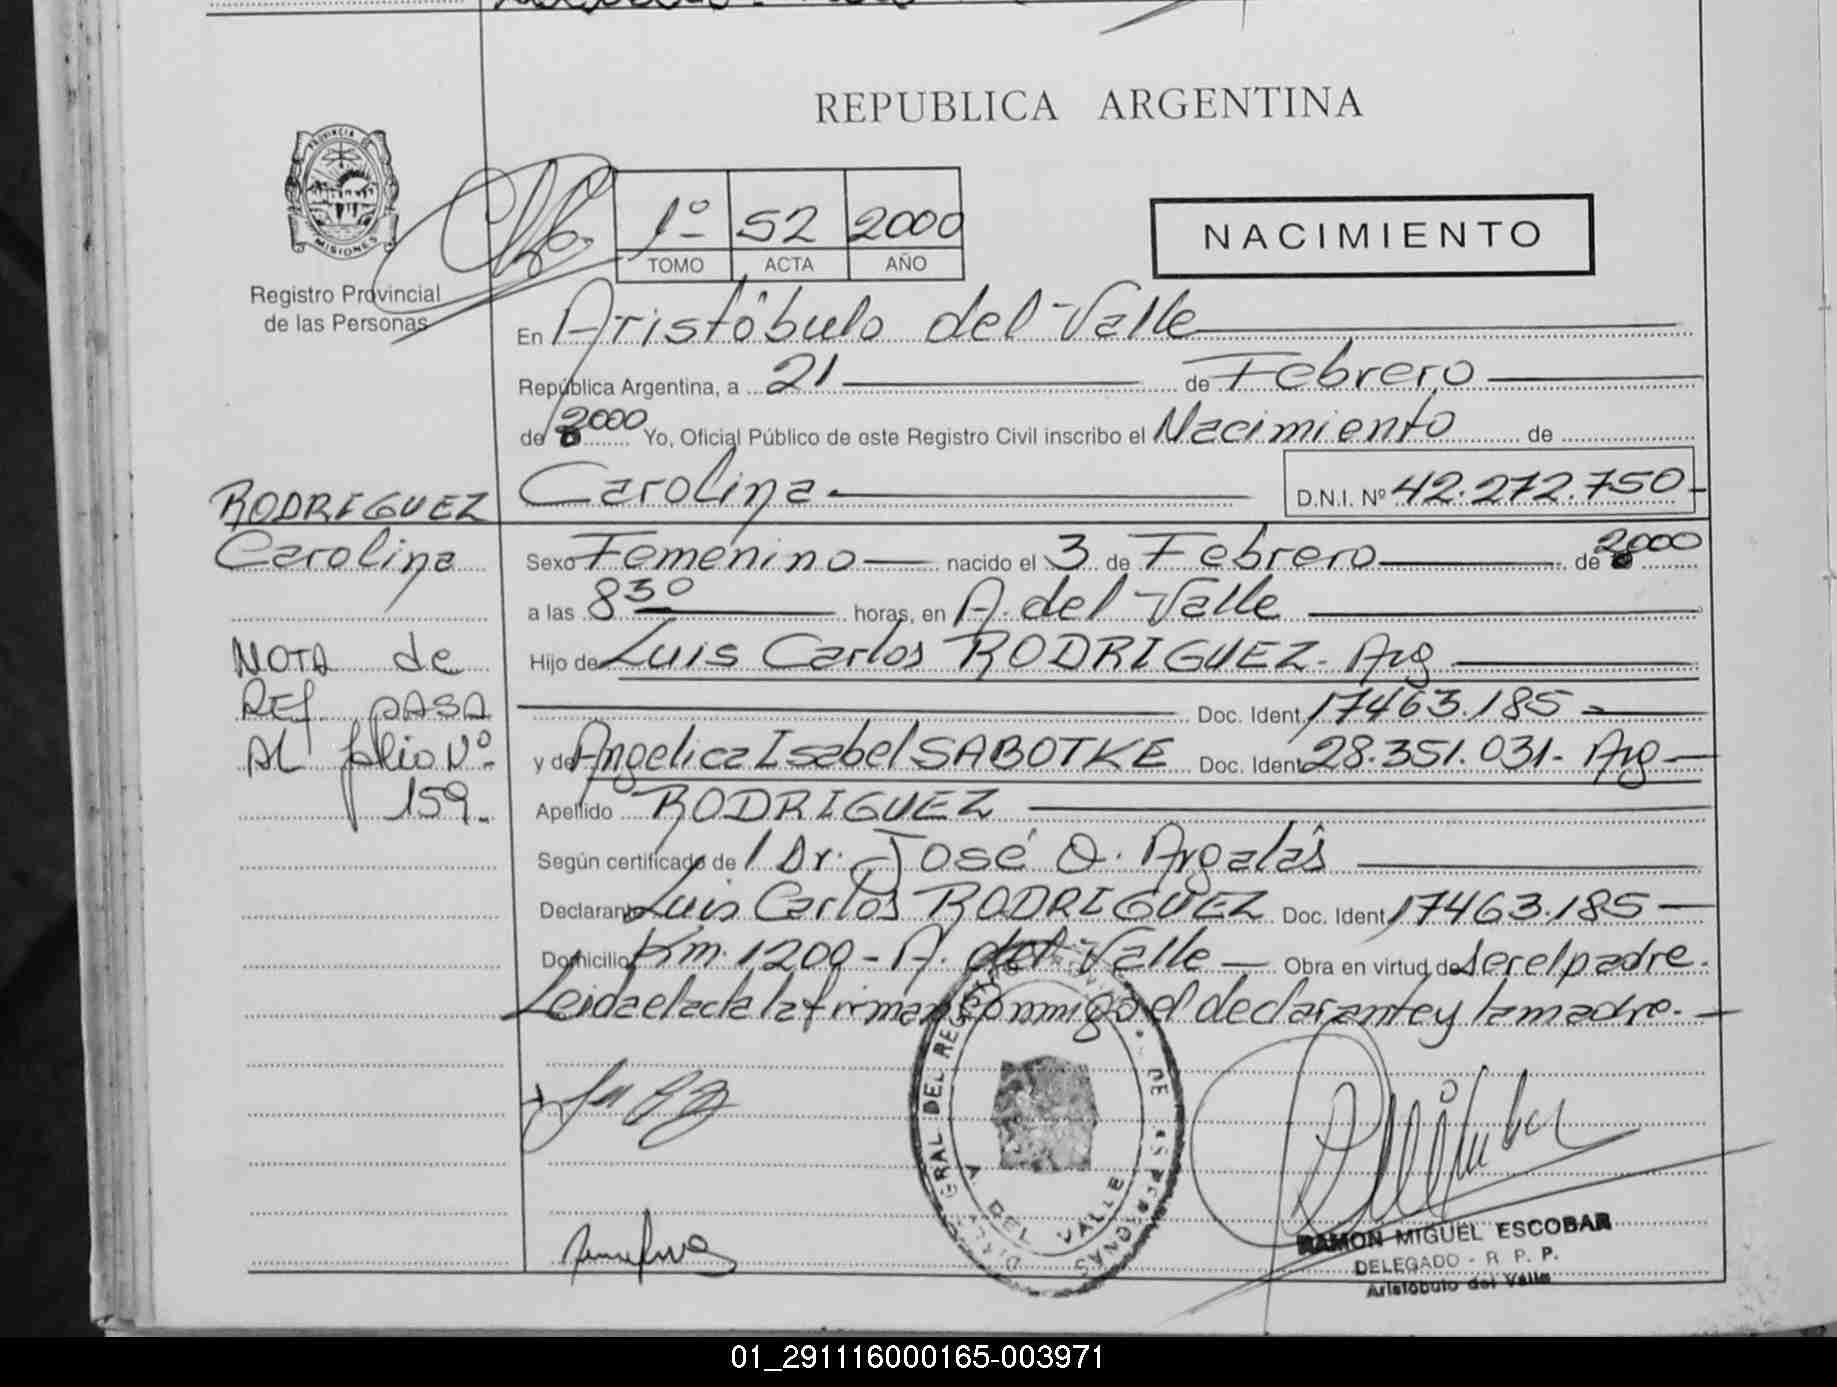 REPUBLICA ARGENTINA
PROVINCIA DE
MISIONES
Registro Provincial
de las Personas
1º 52 2000
TOMO ACTA AÑO
NACIMIENTO
En Aristóbulo del Valle
República Argentina, a 21 de Febrero
de 2000 Yo, Oficial Público de este Registro Civil inscribo el Nacimiento de
Carolina D.N.I. Nº 42.272.750
RODRIGUEZ
Carolina
NOTA de
REF PASA
AL folio Nº
159
Sexo Femenino nacido el 3 de Febrero de 2000
a las 8 30 horas, en A. del Valle
Hijo de Luis Carlos RODRIGUEZ - Arg
Doc. Ident. 17463.185
y de Angelica Isabel SABOTKE Doc. Ident. 28.351.031 - Arg
Apellido RODRIGUEZ
Según certificado de / Dr. José O. Argalás
Declarante Luis Carlos RODRIGUEZ Doc. Ident. 17463.185
Domicilio Km. 1209 - A. del Valle Obra en virtud de ser el padre.
Leida el acta la firman conmigo el declarante y la madre.
GRAL DEL DE PERSONAS
A DEL VALLE
RAMON MIGUEL ESCOBAR
DELEGADO - R. P. P.
Aristóbulo del Valle
01_291116000165-003971